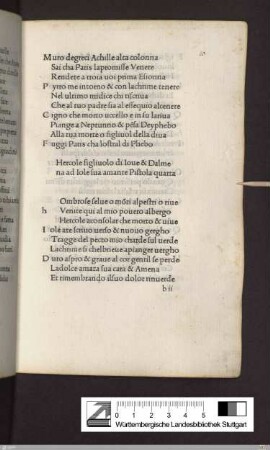 Muro degreci Achille alta colonna
Sai cha Paris lapromisse Venere
Rendete a troia uoi prima Esionna
Pyrro me intorno & con lachrime tenere
Nel ultimo midice chi
Che al suo padre sia al essequio alcenere
Cigno che morto uccello e in su lariua
Piange a Neptunno & posa Deyphebo
Alla tua morte o figliuol della diua
Fuggi Paris cha lostral di Phebo
Hercole figliuolo di Ioue & Dalme
na ad Iole sua amante Pistola quarta
F Ombrose selue o mōti alpestri o riue
h Venite qui al mio pouero albergo
Hercole aconsolar che morto & uiue
Iole ate scriuo uerso & nuouo gergho
Tragge del pecto mio charde si uerde
Lachrime si chelbrieue apianger uergho
Duro aspro & graue al cor gentil se perde
La dolce amata sua cara & Amena
Et rimembrando il suo dolor rinuerde
b ii
0 1 2 3 4 5
Württembergische Landesbibliothek Stuttgart